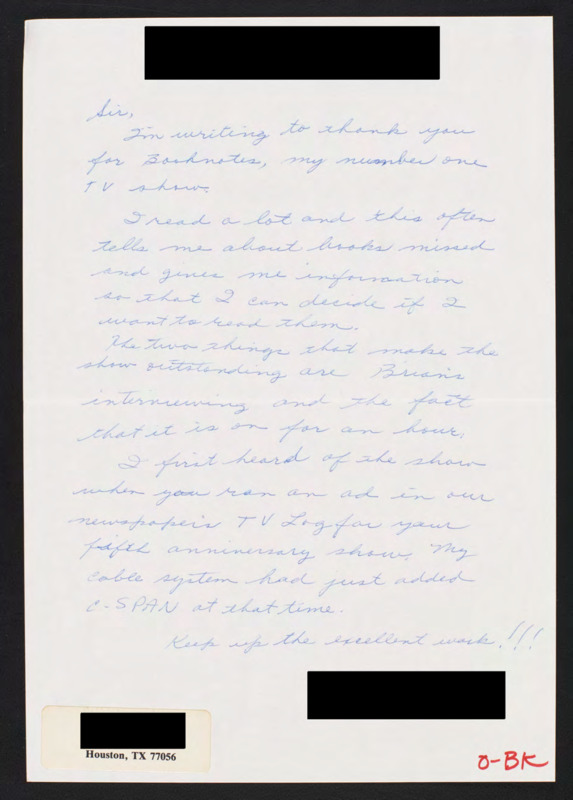 Sir,
I'm writing to thank you
for Booknotes, my number one
TV show.
I read a lot and this often
tells me about books missed
and gives me information
so that I can decide if I
want to read them.
The two things that make the
show outstanding are Brian's
interviewing and the fact
that it is on for an hour.
I first heard of the show
when you ran an ad in our
newspaper's TV Log for your
fifth anniversary show. My
cable system had just added
C-SPAN at that time.
Keep up the excellent work!!!
Houston, TX 77056
O-BK